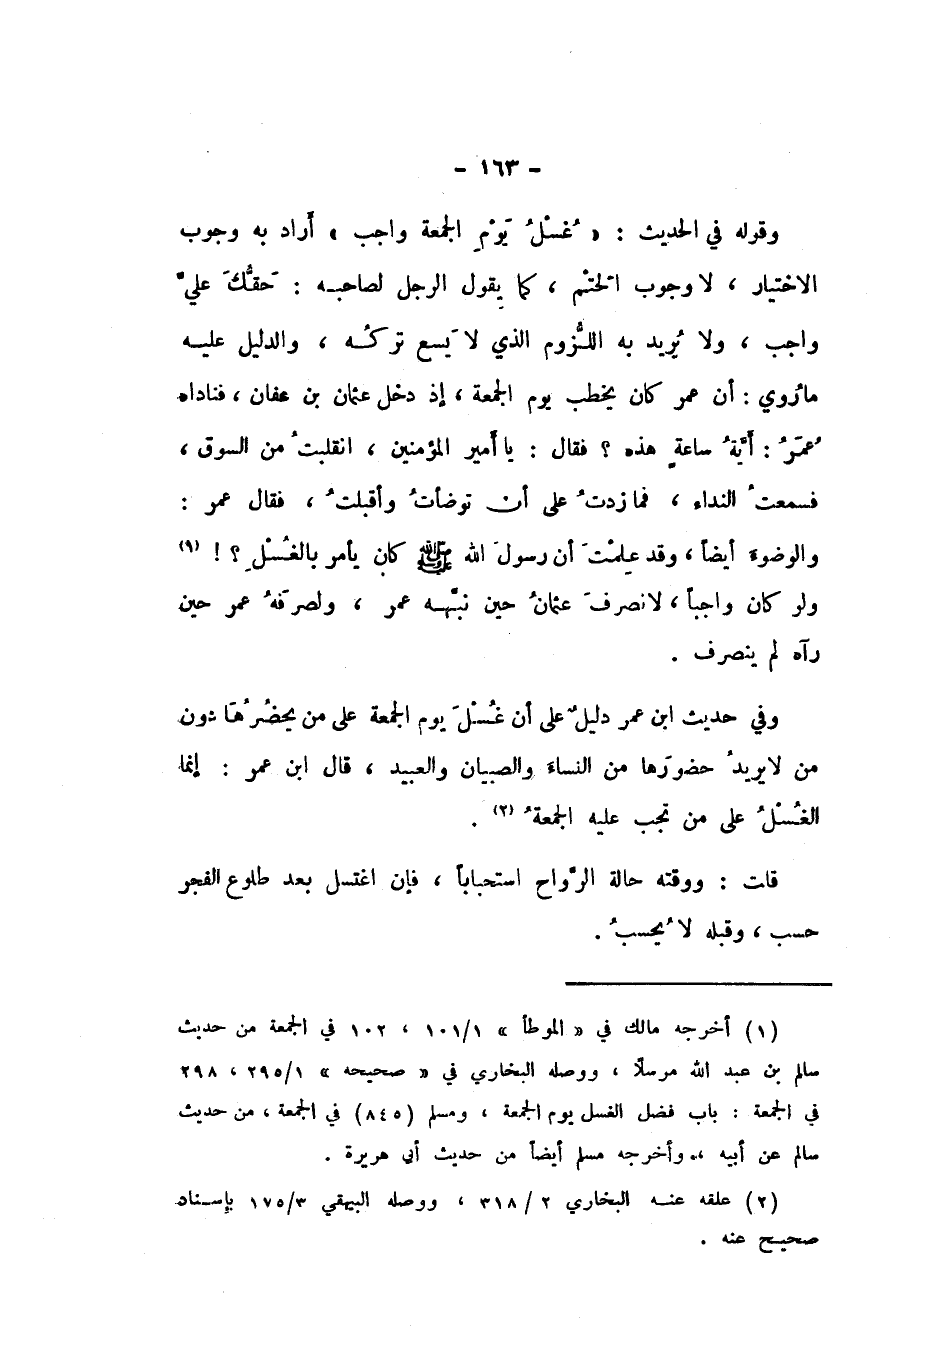 - ١٦٣ -
وقوله في الحديث : « غُسْلُ يَوْمِ الجمعة واجب » أراد به وجوب
الاختيار ، لا وجوب الحَتْم ، كما يقول الرجل لصاحبه : حَقُّكَ عليَّ
واجب ، ولا يُريد به اللزُّوم الذي لا يَسع تركُه ، والدليل عليه
ما رُوي : أن عمر كان يخطب يوم الجمعة ، إذ دخل عثمان بن عفان ، فناداه
عُمَرُ : أَيَّةُ ساعةٍ هذه ؟ فقال : يا أمير المؤمنين ، انقلبتُ من السوق ،
فسمعتُ النداء ، فما زدتُ على أن توضأتُ وأقبلتُ ، فقال عمر :
والوضوءَ أيضاً ، وقد علِمْتَ أن رسولَ الله ﷺ كان يأمر بالغُسْلِ ؟ ! (١)
ولو كان واجباً ، لانصرفَ عثمانُ حين نبَّهه عمر ، ولصرَفَهُ عمر حين
رآه لم ينصرف .
وفي حديث ابن عمر دليلٌ على أن غُسْلَ يوم الجمعة على من يحضُرُهَا دون
من لا يريدُ حضورَها من النساء والصبيان والعبيد ، قال ابن عمر : إنما
الغُسْلُ على من تجب عليه الجمعةُ (٢) .
قلت : ووقته حالة الرَّواح استحباباً ، فإن اغتسل بعد طلوع الفجر
حسب ، وقبله لا يُحسبُ .
(١) أخرجه مالك في « الموطأ » ١٠١/١ ، ١٠٢ في الجمعة من حديث
سالم بن عبد الله مرسلًا ، ووصله البخاري في « صحيحه » ٢٩٥/١ ، ٢٩٨
في الجمعة : باب فضل الغسل يوم الجمعة ، ومسلم (٨٤٥) في الجمعة ، من حديث
سالم عن أبيه ، وأخرجه مسلم أيضاً من حديث أبي هريرة .
(٢) علقه عنه البخاري ٢ / ٣١٨ ، ووصله البيهقي ١٧٥/٣ بإسناد
صحيح عنه .